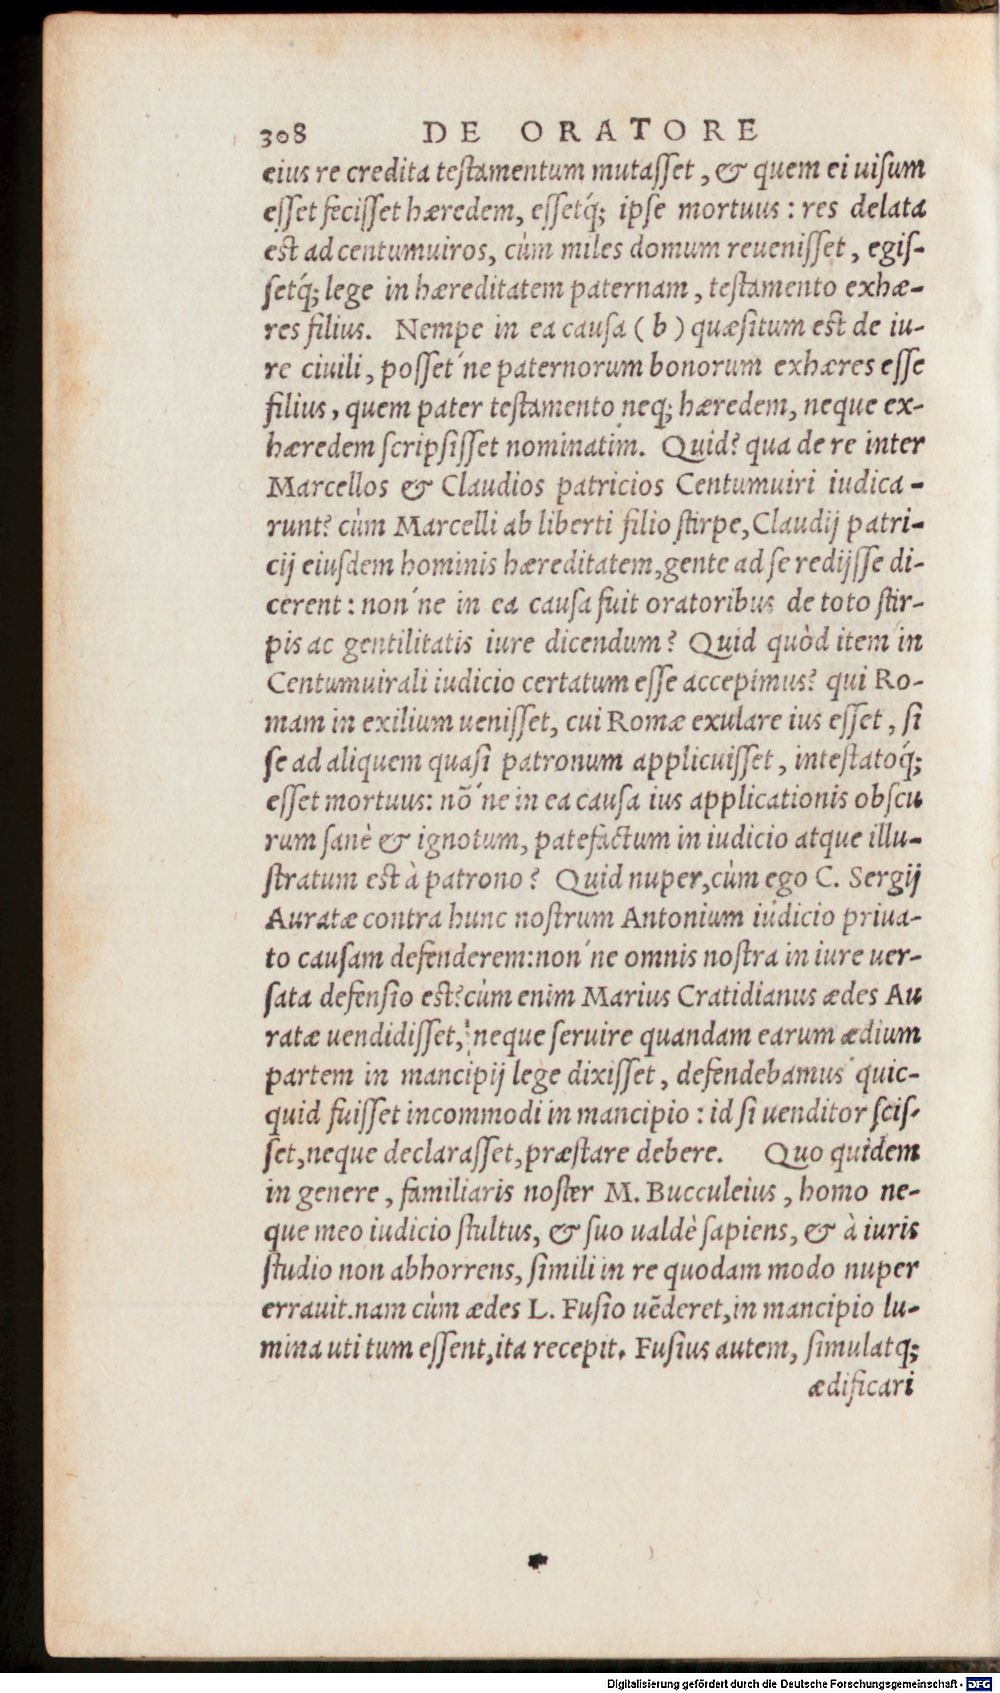 308 DE ORATORE
eius re credita testamentum mutasset, & quem ei uisum
esset fecisset hæredem, essetq́; ipse mortuus: res delata
est ad centumuiros, cùm miles domum reuenisset, egis-
setq́; lege in hæreditatem paternam, testamento exhæ-
res filius. Nempe in ea causa (b) quæsitum est de iu-
re ciuili, posset´ne paternorum bonorum exhæres esse
filius, quem pater testamento neq; hæredem, neque ex-
hæredem scripsisset nominatim. Quid? qua de re inter
Marcellos & Claudios patricios Centumuiri iudica-
runt? cùm Marcelli ab liberti filio stirpe, Claudij patri-
cij eiusdem hominis hæreditatem, gente ad se redijsse di-
cerent: non´ne in ea causa fuit oratoribus de toto stir-
pis ac gentilitatis iure dicendum? Quid quòd item in
Centumuirali iudicio certatum esse accepimus? qui Ro-
mam in exilium uenisset, cui Romæ exulare ius esset, si
se ad aliquem quasi patronum applicuisset, intestatoq́;
esset mortuus: nō´ne in ea causa ius applicationis obscu
rum sanè & ignotum, patefactum in iudicio atque illu-
stratum est à patrono? Quid nuper, cùm ego C. Sergij
Auratæ contra hunc nostrum Antonium iudicio priua-
to causam defenderem: non´ne omnis nostra in iure uer-
sata defensio est? cùm enim Marius Cratidianus ædes Au
ratæ uendidisset, neque seruire quandam earum ædium
partem in mancipij lege dixisset, defendebamus quic-
quid fuisset incommodi in mancipio: id si uenditor scis-
set, neque declarasset, præstare debere. Quo quidem
in genere, familiaris noster M. Bucculeius, homo ne-
que meo iudicio stultus, & suo ualdè sapiens, & à iuris
studio non abhorrens, simili in re quodam modo nuper
errauit. nam cùm ædes L. Fusio uēderet, in mancipio lu-
mina uti tum essent, ita recepit. Fusius autem, simulatq;
ædificari
Digitalisierung gefördert durch die Deutsche Forschungsgemeinschaft - DFG